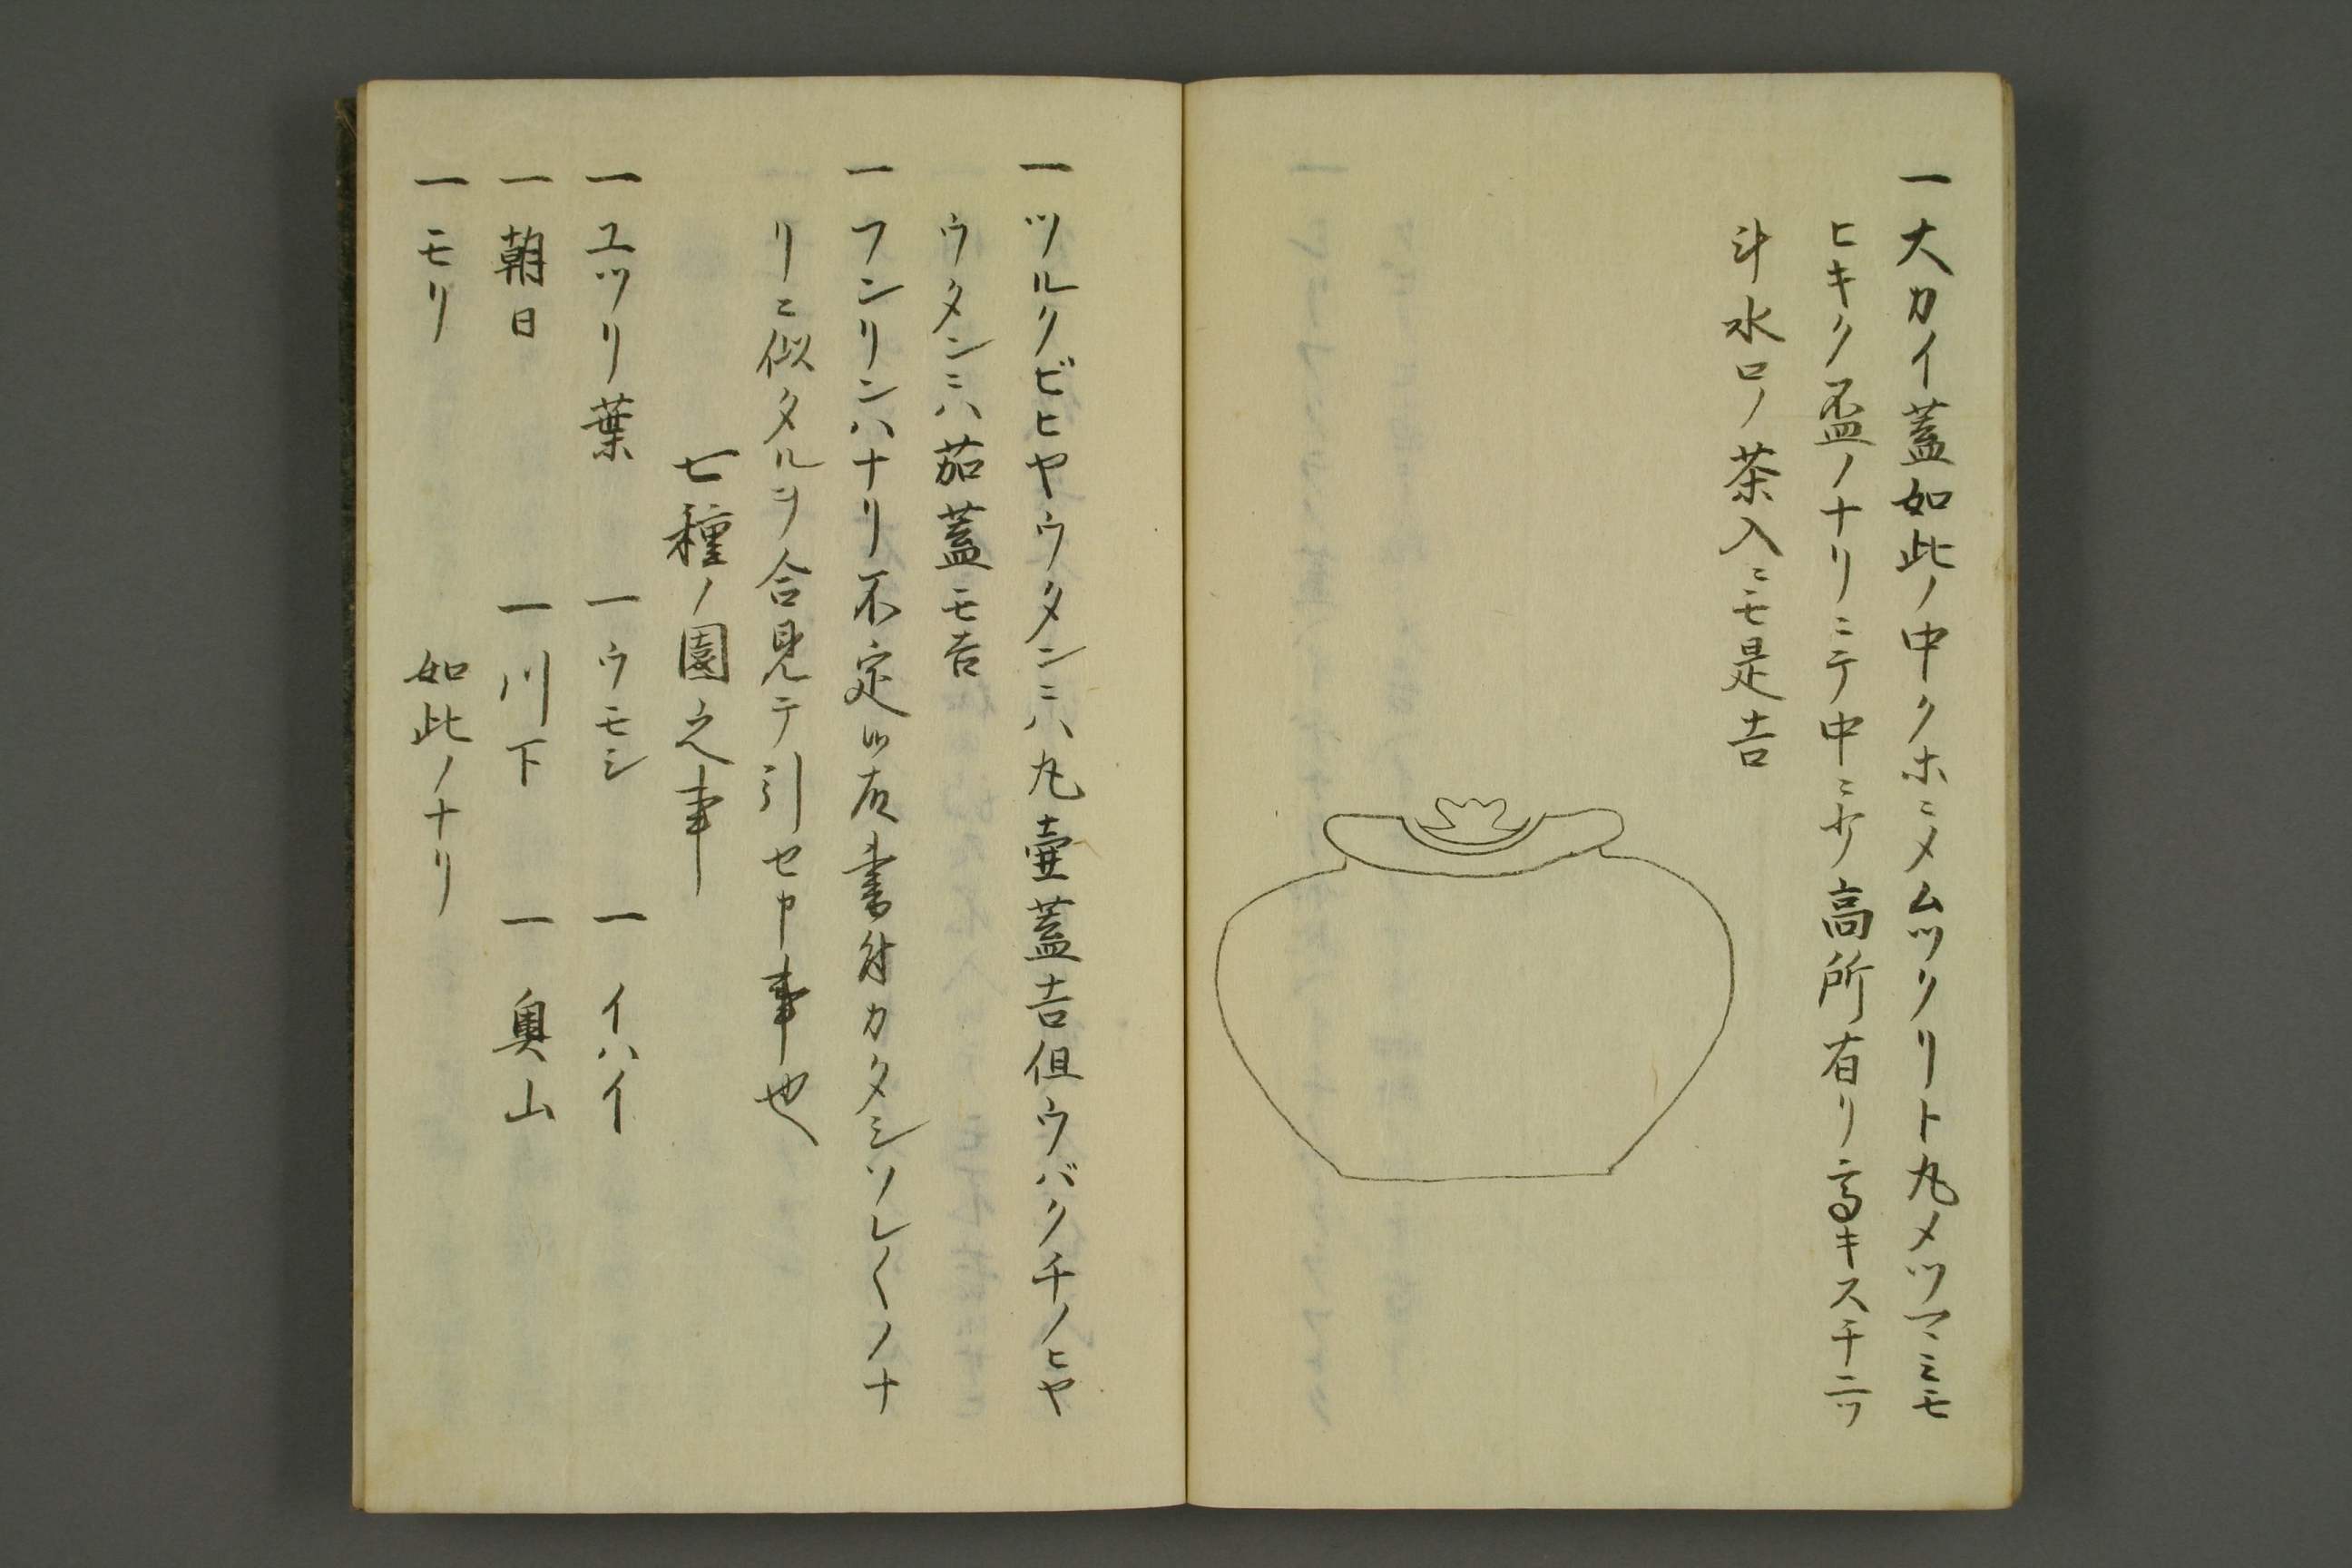 一大カイ蓋如此ノ中クホニメムツクリト丸メツマミモ
ヒキク盃ノナリニテ中ニ少高所有リ高キスチ二ツ
斗水口ノ茶入ニモ是吉
一ツルクビヒヤウタンニハ丸壷蓋吉但ウバクチノヒヤ
ウタンニハ茄蓋モ吉
一フンリンハナリ不定故書付カタシソレ〱ノナ
リニ似タルヲ合見テ引セ申事也
七種ノ園之事
一ユツリ葉 一ウモシ 一イハイ
一朝日 一川下 一奥山
一モリ 如此ノナリ